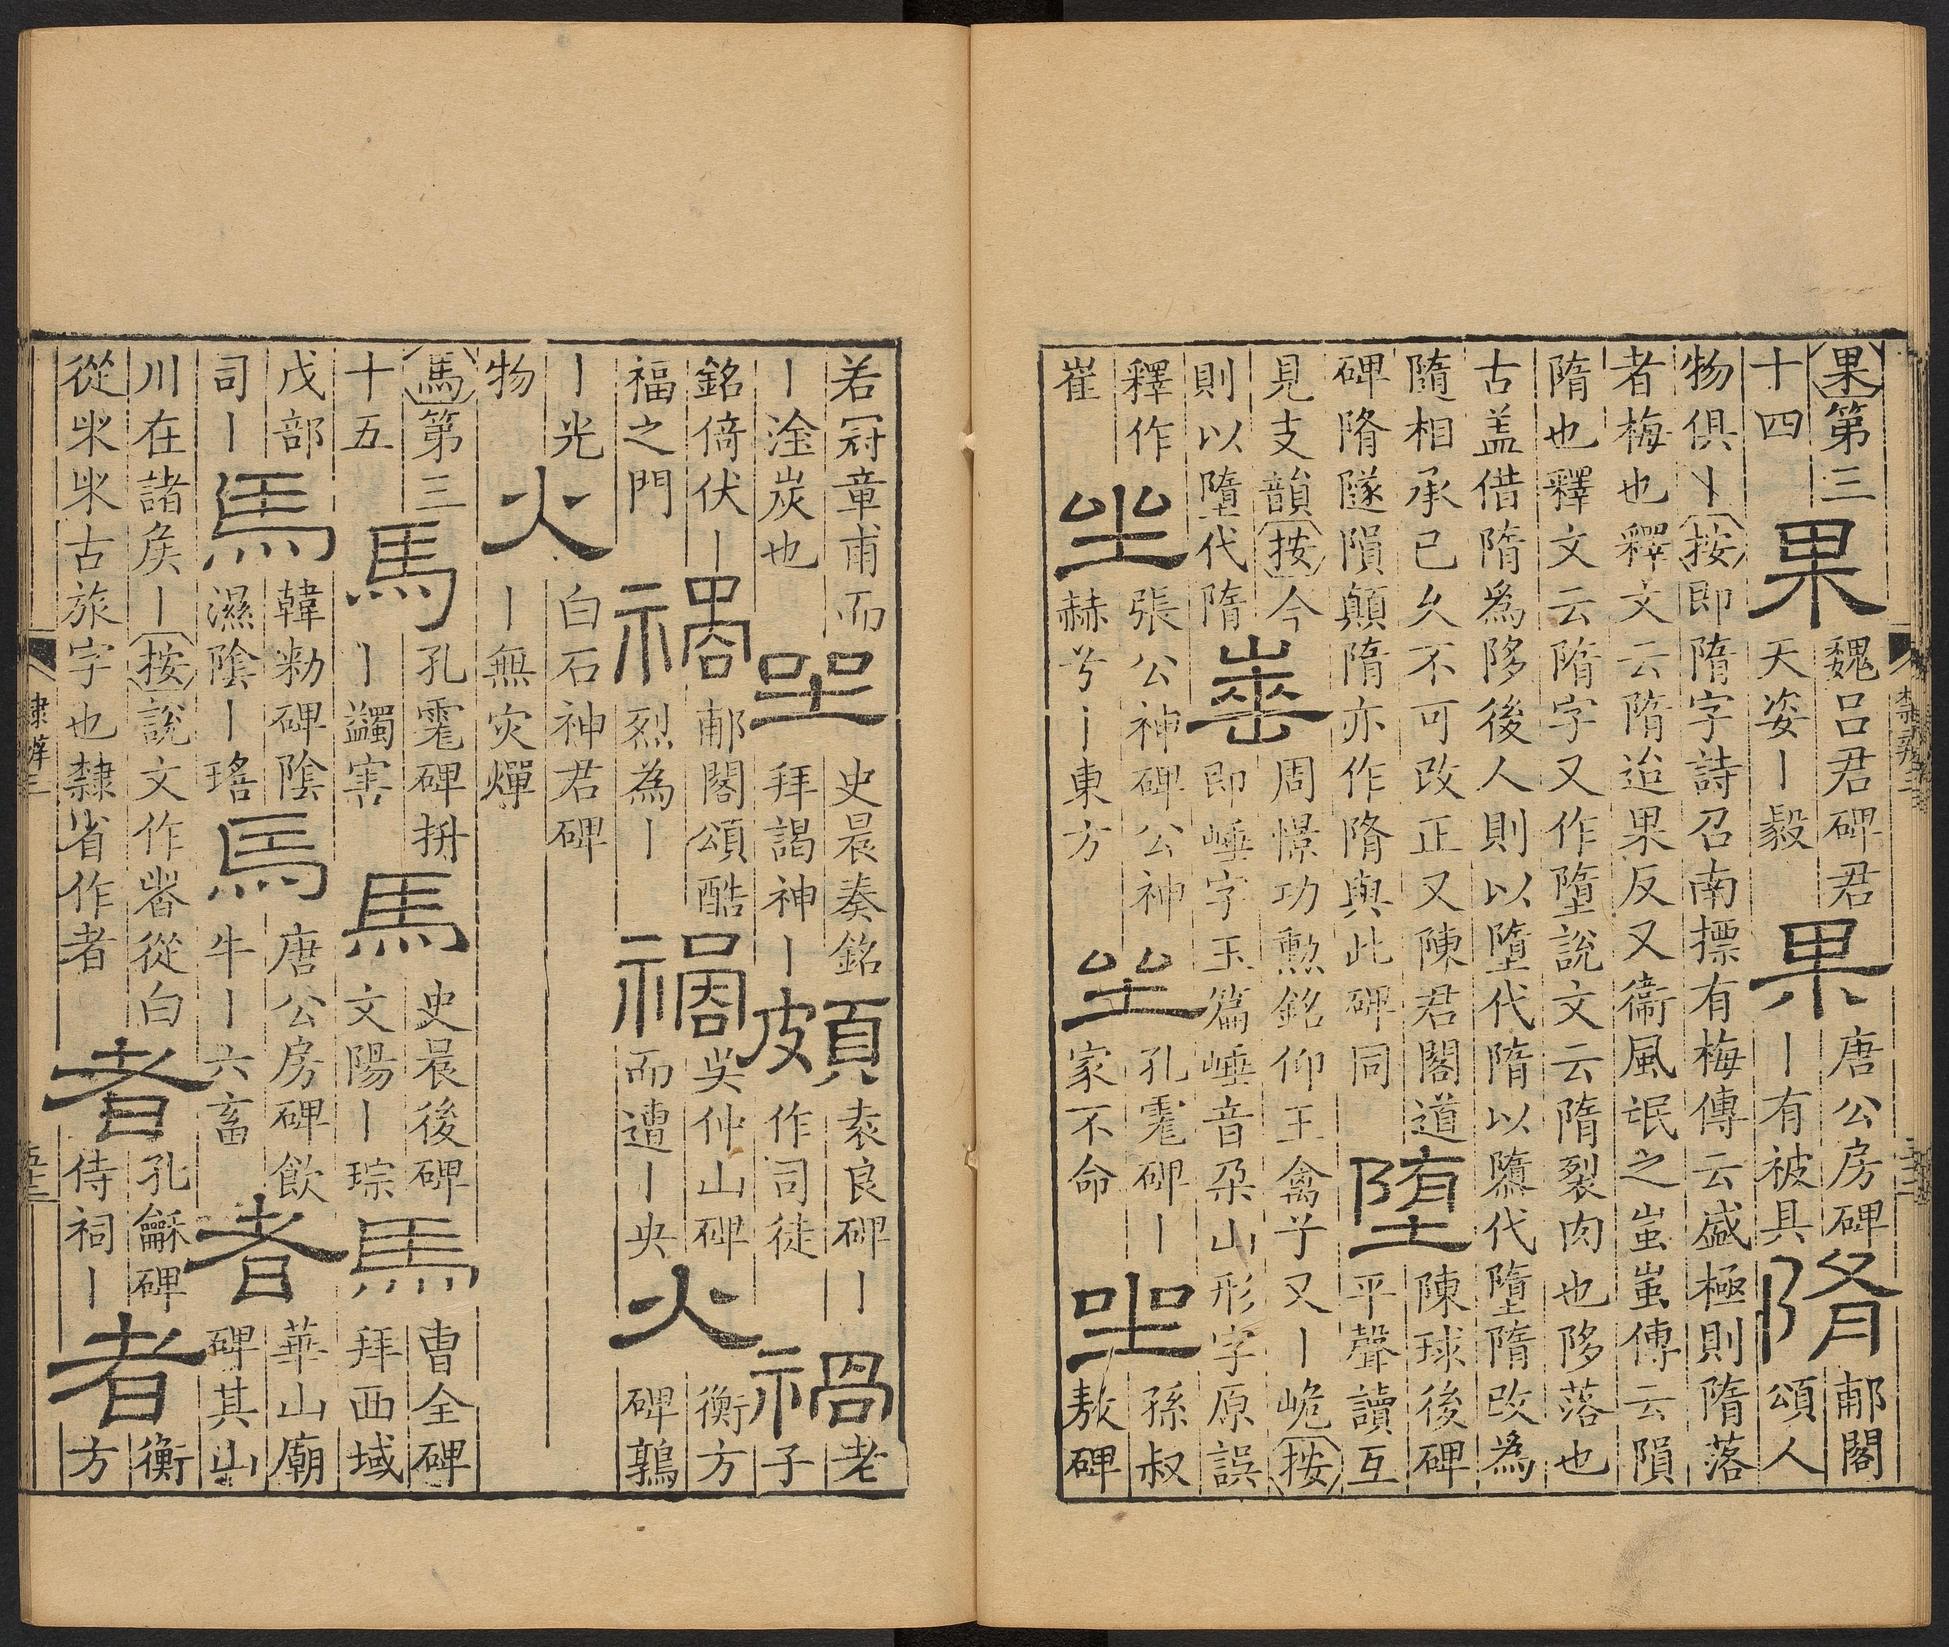 果第三
十四
果
魏呂君碑君
天姿丨毅
果
唐公房碑
丨有被具
隋
郙閣
頌人
物俱丨按即隋字詩召南摽有梅傳云盛極則隋落
者梅也釋文云隋迨果反又衞風氓之蚩蚩傳云隕
隋也釋文云隋字又作墮說文云隋裂肉也陊落也
古盖借隋為陊後人則以墮代隋以隳代墮隋改為
隨相承已久不可改正又陳君閣道
碑隋隧隕顛隋亦作隋與此碑同
陏
陳球後碑
平聲讀互
見支韻按今
則以墮代隋
周憬功勲銘仰王禽兮又丨峗按
即崜字玉篇崜音朶山形字原誤
釋作
崔
坐
張公神碑公神
赫兮丨東方
坐
孔宙碑丨
家不命
坐
孫叔
敖碑
若冠章甫而
丨淦炭也
坐
史晨奏銘
拜謁神丨
頗
袁良碑丨
作司徒
禍
老
子
銘倚伏丨
福之門
禍
郙閣頌酷
烈為丨
禍
吳仲山碑
而遭丨央
火
衡方
碑鶉
丨光
物
火
白石神君碑
丨無灾燀
馬第三
十五
馬
孔宙碑拚
丨蠲害
馬
史晨後碑
文陽丨琮
馬
曹全碑
拜西域
戊部
司丨
馬
韓勑碑陰
濕陰丨珤
馬
唐公房碑飲
牛丨六畜
者
華山廟
碑其山
川在諸矦丨按說文作從白
從古旅字也隸省作者
者
孔龢碑
侍祠丨
者
衡
方
隸辨三